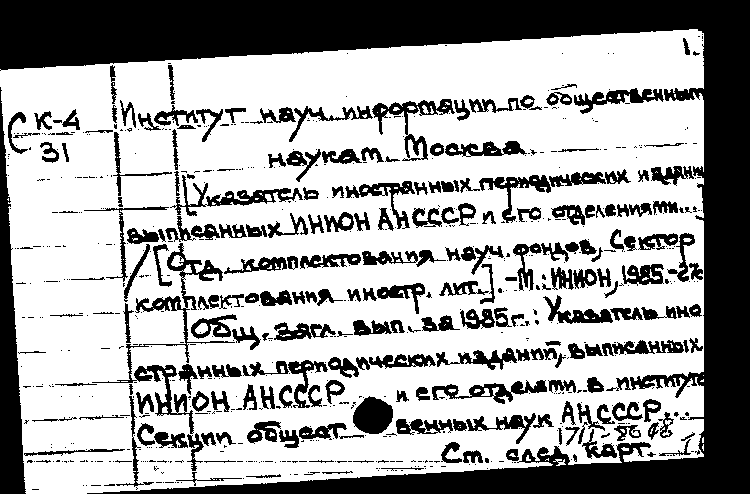 1.
С К-4 Институт науч. информации по общественным
31 наукам. Москва.
[Указатель иностранных периодических изданий
выписанных ИНИОН АНСССР и его отделениями...]
[Отд. комплектования науч. фондов, Сектор
комплектования иностр. лит.]. -М.: ИНИОН, 1985.-27с
Общ. загл. вып. за 1985г.: Указатель ино
странных периодических изданий, выписанных
ИНИОН АНСССР и его отделами в институте
Секции общест венных наук АНСССР...
Ст. след. карт.